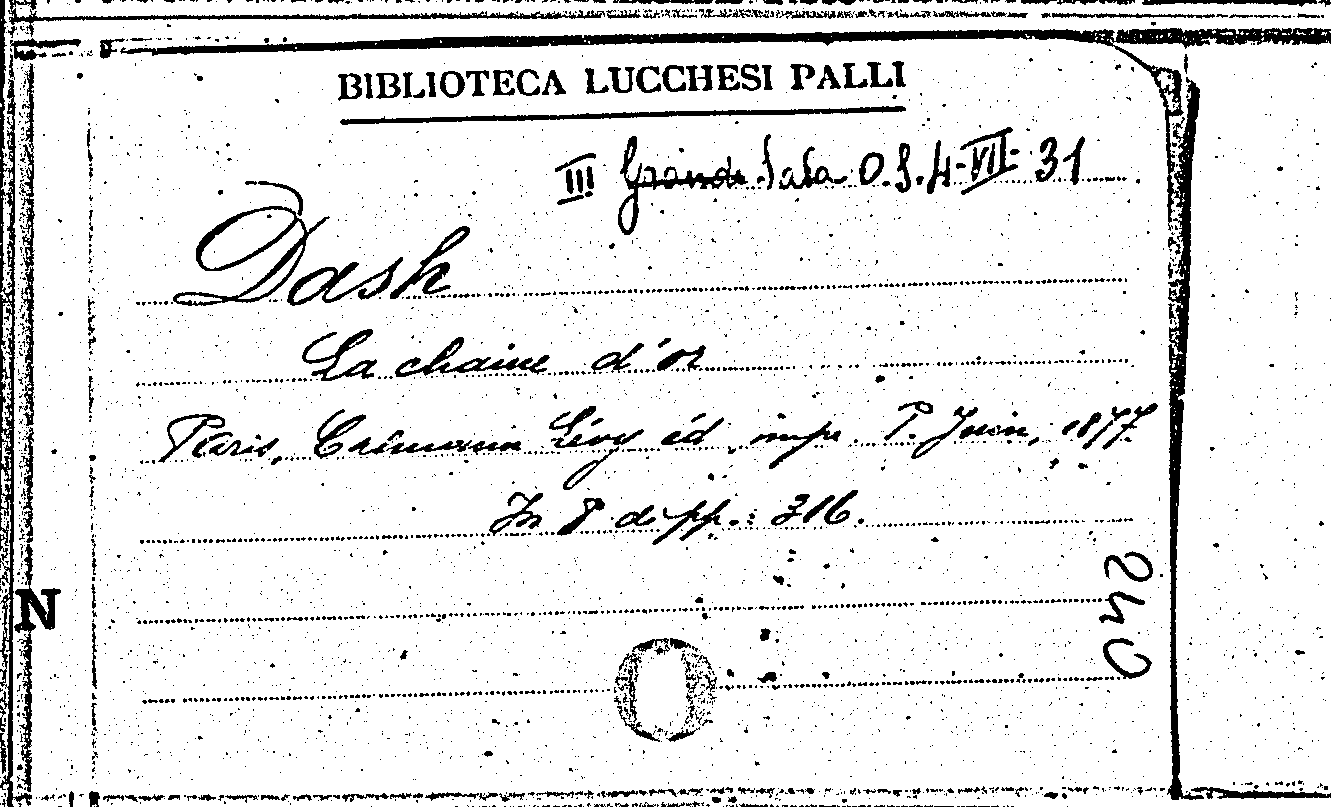 BIBLIOTECA LUCCHESI PALLI
III Grande Sala O.S.4-VII-31
Dash
La chaine d'or
Paris, Calmann Lévy éd. impr. P. 1877.
In 8 di pp.: 316.
240
N